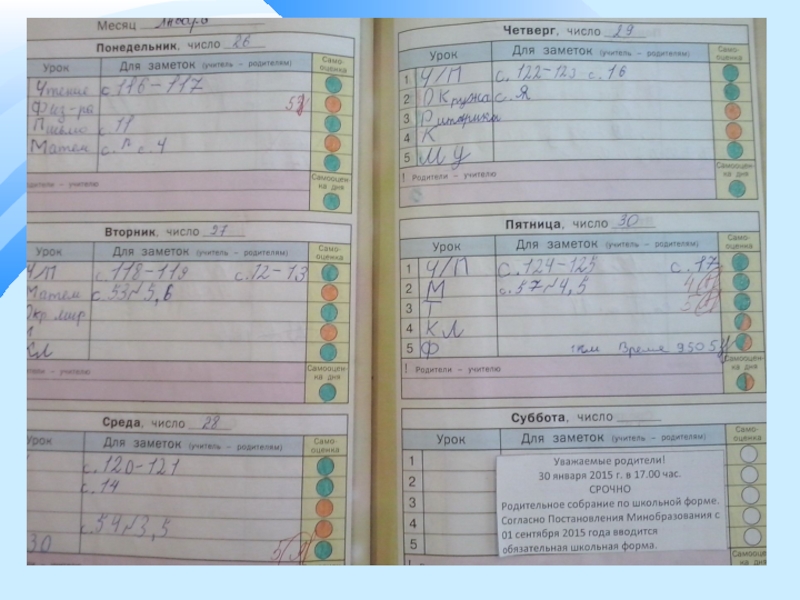 Месяц январь
Понедельник, число 26
Урок Для заметок (учитель – родителям) Само-оценка
Чтение с 116-117
Физ-ра 5
Письмо с 11
Матем с. с. 4
Самооцен-ка дня
родители – учителю
Вторник, число 27
Урок Для заметок (учитель – родителям) Само-оценка
Ч/П с. 118-119 с. 12-13
Матем с. 53 №5, 6
Окр. мир
КЛ
Самооцен-ка дня
родители – учителю
Среда, число 28
Урок Для заметок (учитель – родителям) Само-оценка
с. 120-121
с. 14
с. 54 №3, 5
Четверг, число 29
Урок Для заметок (учитель – родителям) Само-оценка
1 Ч/П с. 122-123 с. 16
2 Окружа с. Я
3 Риторика
4 К
5 М У
! Родители – учителю
Самооцен-ка дня
Пятница, число 30
Урок Для заметок (учитель – родителям) Само-оценка
1 Ч/П с. 124-125 с. 17
2 М с. 57 №4, 5 4
3 Т 5
4 КЛ
5 Ф 1км Время 9 50 5
! Родители – учителю
Самооцен-ка дня
Суббота, число
Урок Для заметок (учитель – родителям) Само-оценка
1
2
3
4
5
Уважаемые родители!
30 января 2015 г. в 17.00 час.
СРОЧНО
Родительное собрание по школьной форме.
Согласно Постановления Минобразования с
01 сентября 2015 года вводится
обязательная школьная форма.